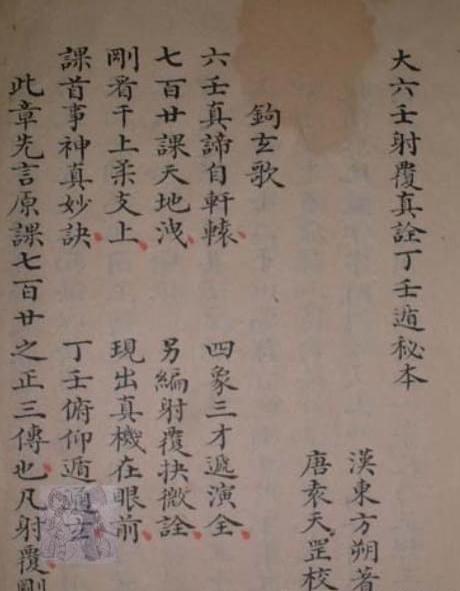 大六壬射覆真詮丁壬遁秘本
漢東方朔著
唐袁天罡校
鉤玄歌
六壬真諦自軒轅 四象三才遞演全
七百廿課天地洩 另編射覆抉微詮
剛看干上柔支上 現出真機在眼前
課首事神真妙訣 丁壬俯仰遁通玄
此章先言原課七百廿之正三傳也凡射覆剛